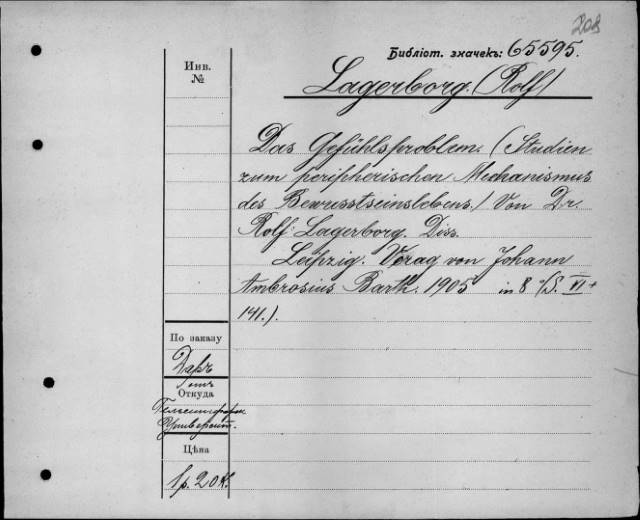 208
Библіот. значекъ: 65595.
Инв.
№
Lagerborg. (Rolf)
Das Gefühlsproblem. (Studien
zum peripherischen Mechanismus
des Bewusstseinslebens.) Von Dr.
Rolf Lagerborg. Diss.
Leipzig. Verag von Johann
Ambrosius Barth. 1905 in 8° (S. VI +
141.).
По заказу
Даръ
отъ
Откуда
Гельсингфорс
Университ.
Цѣна
1р. 20 к.